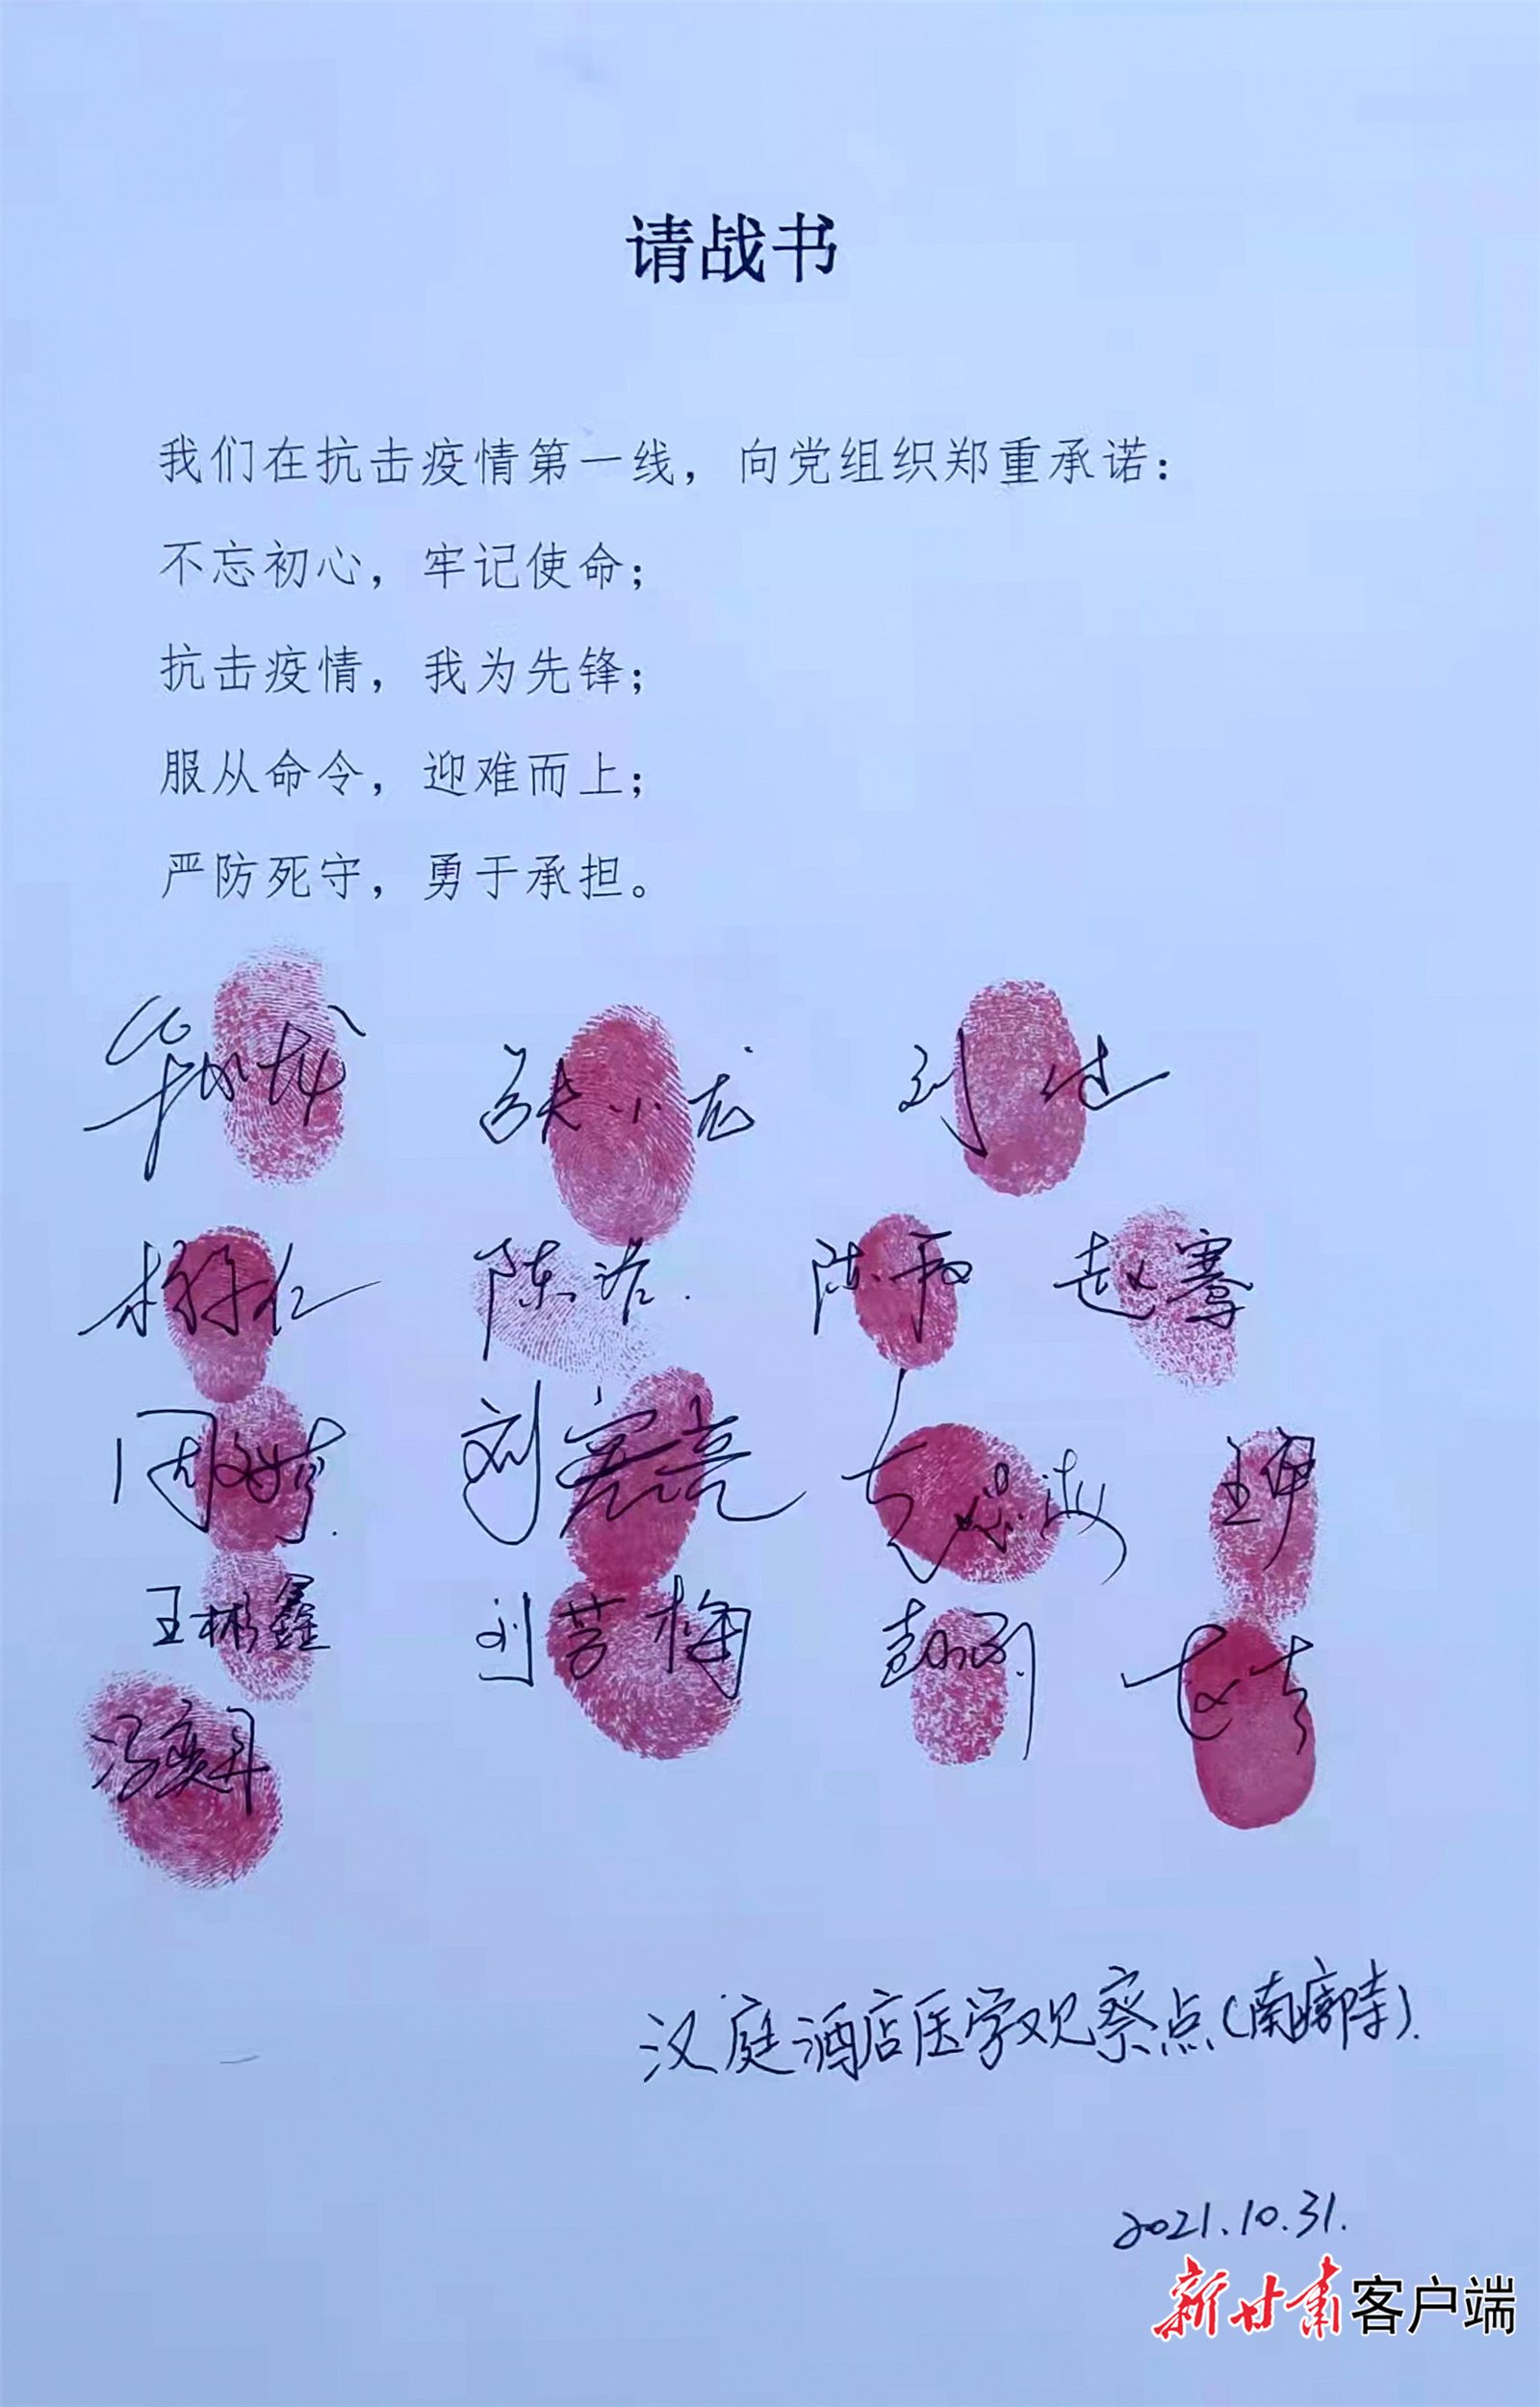 请战书
我们在抗击疫情第一线，向党组织郑重承诺：
不忘初心，牢记使命；
抗击疫情，我为先锋；
服从命令，迎难而上；
严防死守，勇于承担。
张小龙 刘
陈诺. 陈 赵骞
周 刘宏亮 王伊
王彬鑫 刘芳梅 彭刚
冯奕丹
汉庭酒店医学观察点(南廓寺).
2021.10.31.
新甘肃客户端